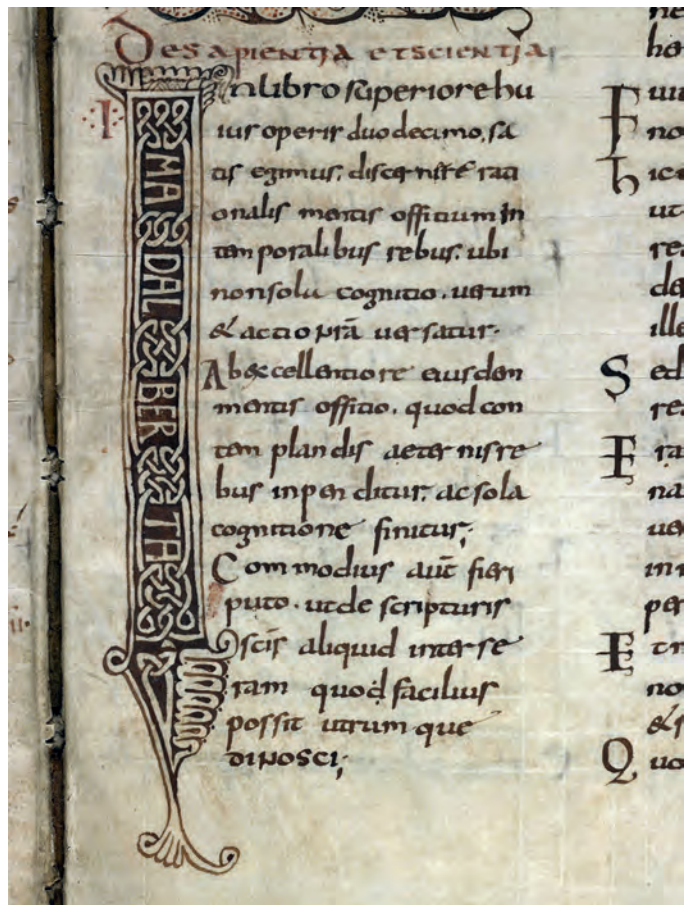 De sapientia et scientia
In libro superiore hu
ius operis duodecimo, sa
tis egimus, discernere rati
onalis mentis offitium in
temporalibus rebus, ubi
non solū cognitio. uerum
& actio nrā uersatur.
Ab excellentiore eiusdem
mentis offitio. quod con
templandis aeternis re
bus inpenditur, ac sola
cognitione finitur;
Commodius aut̄ fieri
puto. ut de scripturis
sc̄is aliquid interse
ram quod facilius
possit utrumque
dinosci;
I
MA
DAL
BER
TA
F
h
S ed
F ra
E t
Q uo